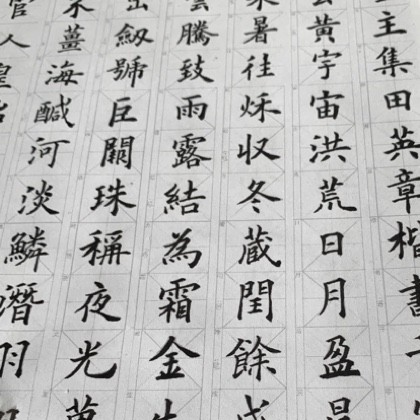 主集田英章楷書
黃宇宙洪荒日月盈
暑往秋収冬藏閏餘
雲騰致雨露結為霜金生
出號巨闕珠稱夜光
薑海醎河淡鱗潛羽
官人皇